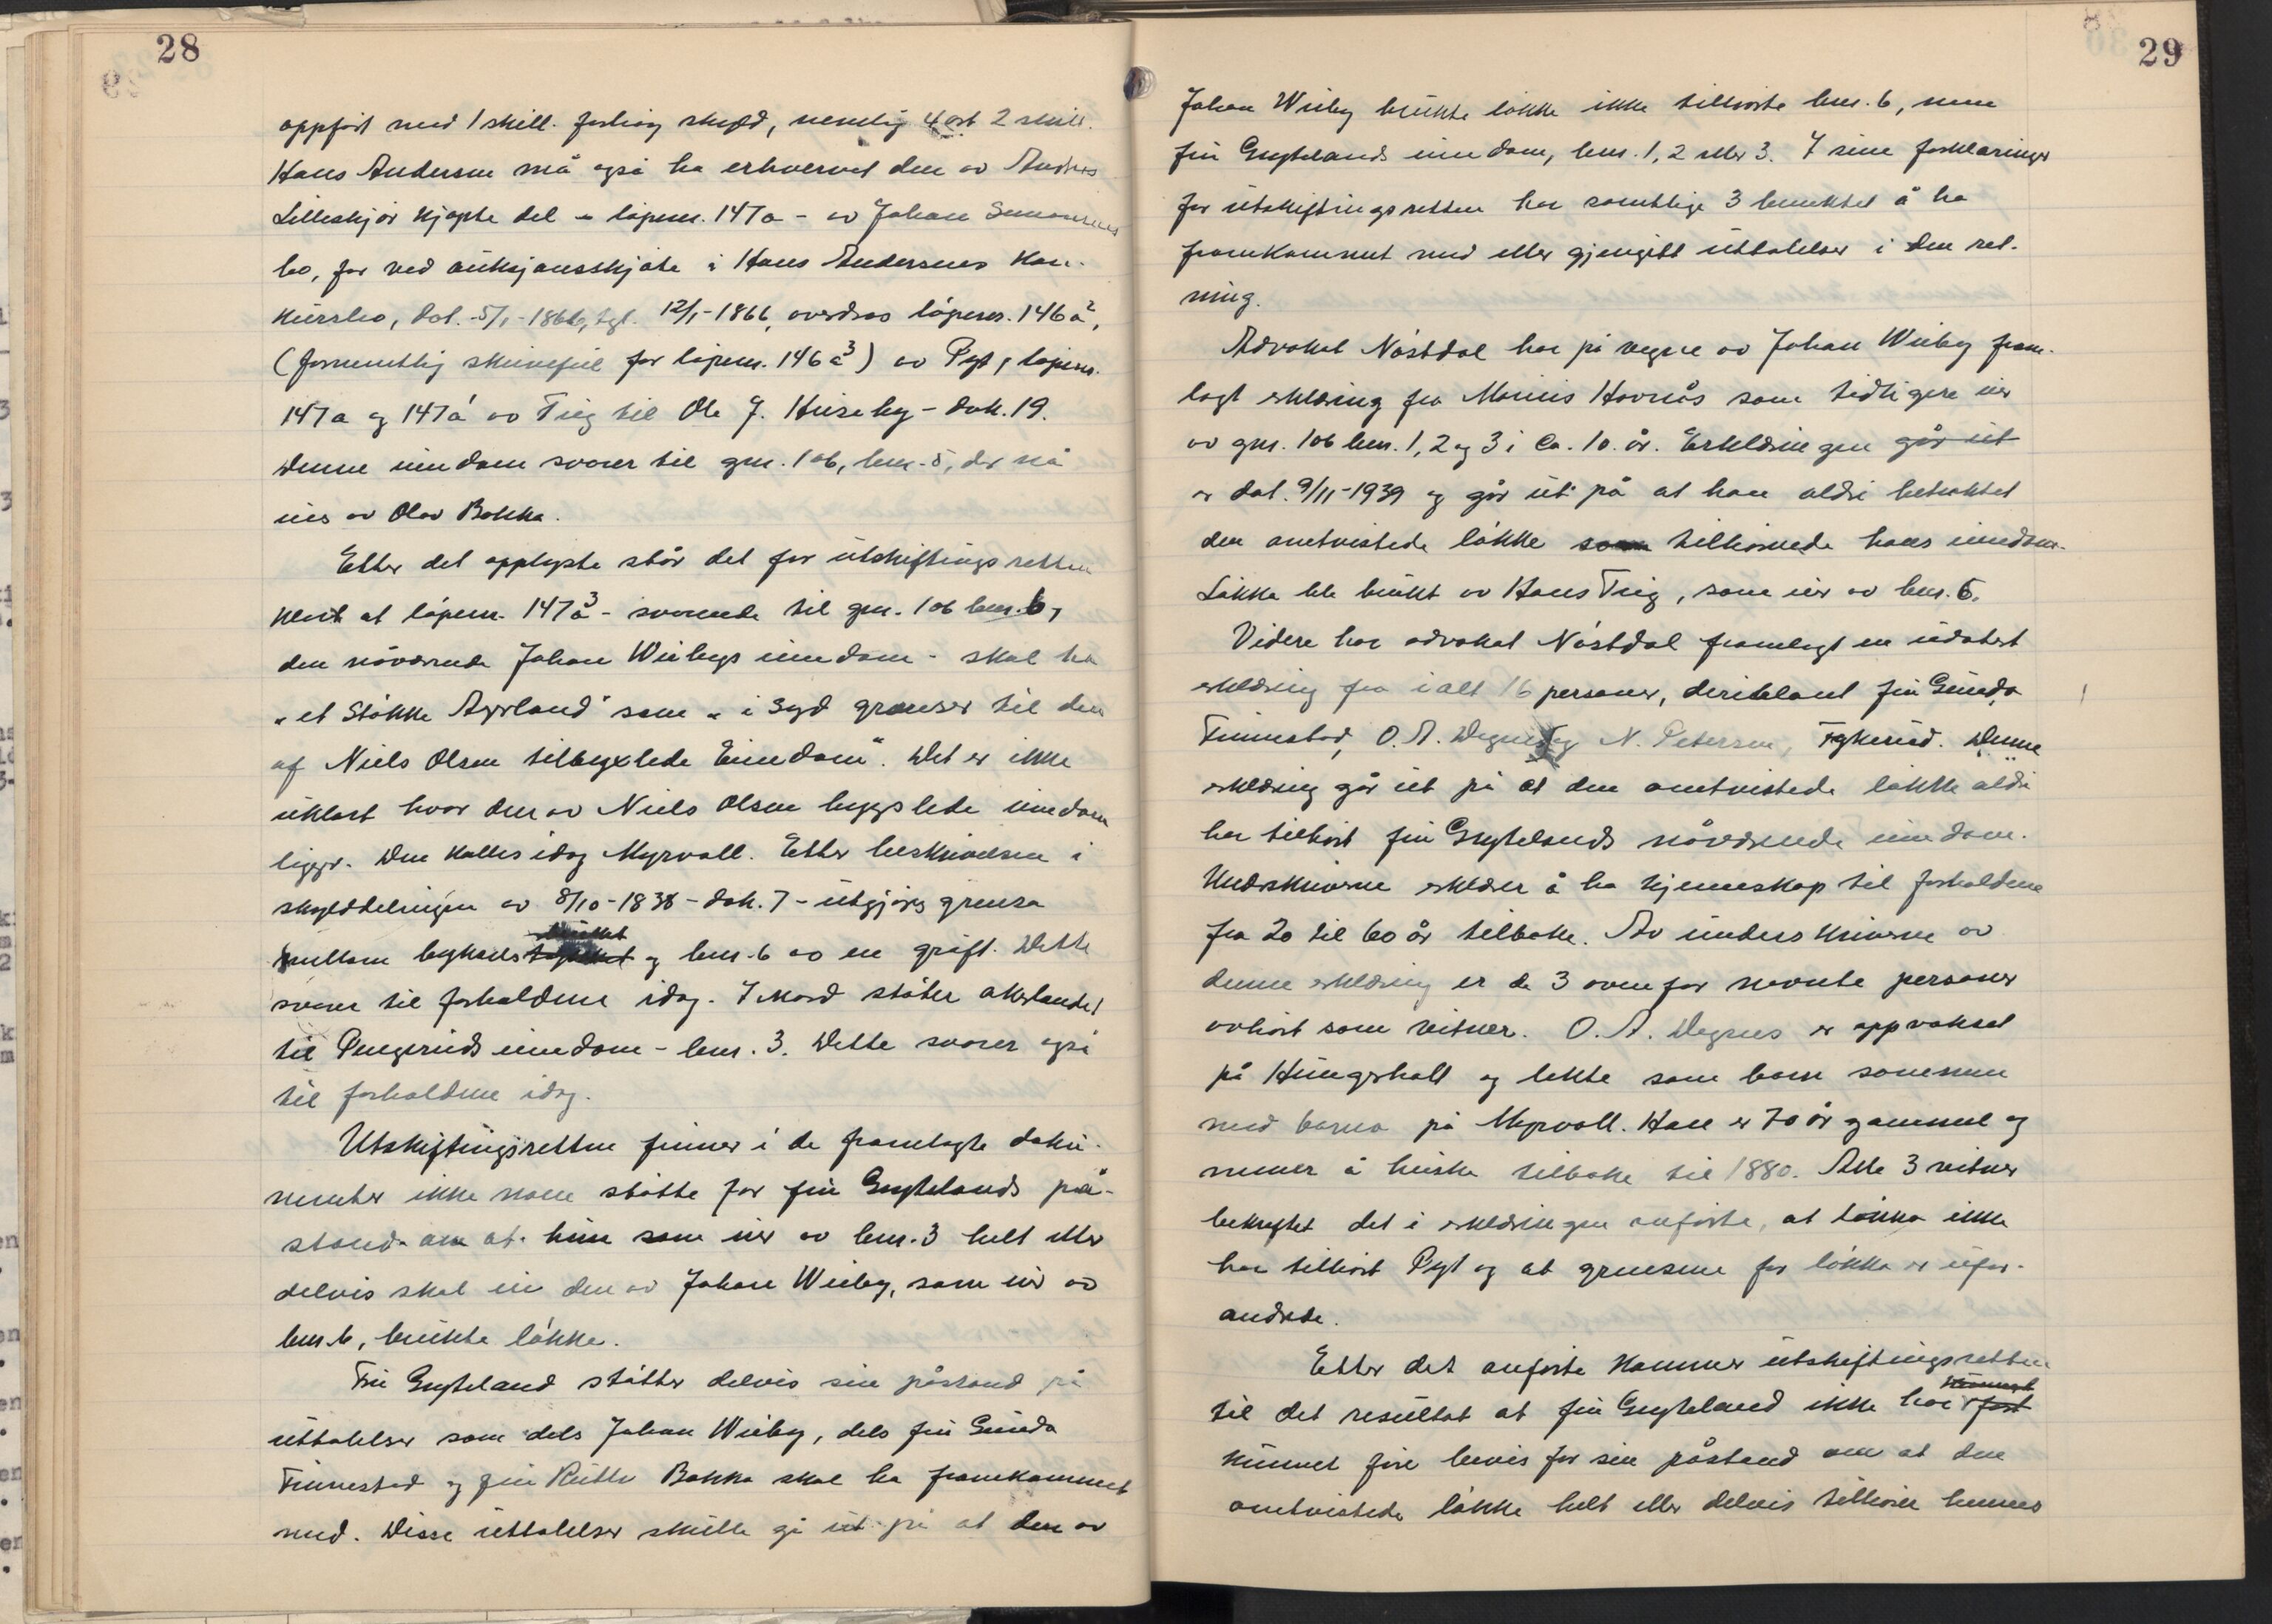 28
oppført med 1 skill. forhøy skyld, nemlig 4 ort 2 skill.
Hans Andersen må også ha erhvervet den av Andreas
Lilleskjør kjøpte del - løpenr. 147a - av Johan Simonsens
bo, for ved auksjonsskjøte i Hans Andersens kon-
kursbo, dat. 5/1-1866, tgl. 12/1-1866, overdras løpenr. 146a²,
(formentlig skrivefeil for løpenr. 146a³) av Pyt, løpenr.
147a og 147a¹ av Teig til Ole J. Huseby - dok. 19.
Denne eiendom svarer til gnr. 106, bnr. 5, der nå
eies av Olav Bakka.
Etter det opplyste står det for utskiftingsretten
klart at løpenr. 147a³ - svarende til gnr. 106 bnr. 6,
den nåværende Johan Wiebys eiendom - skal ha
"et Støkke Agerland" som "i Syd grænser til den
af Niels Olsen tilbyxlede Eiendom". Det er ikke
uklart hvor den av Niels Olsen bygslede eiendom
ligger. Den kalles idag Myrvoll. Etter beskrivelsen i
skylddelingen av 8/10-1838 - dok. 7 - utgjøres grensa
mellom bygsels og bnr. 6 av en grøft. Dette
svarer til forholdene idag. I Nord støter akerlandet
til Pengeruds eiendom - bnr. 3. Dette svarer også
til forholdene idag.
Utskiftingsretten finner i de framlagte doku-
menter ikke noen støtte for fru Grytelands på-
stand om at hun som eier av bnr. 3 helt eller
delvis skal eie den av Johan Wieby, som eier av
bnr. 6, brukte løkke.
Fru Gryteland støtter delvis sin påstand på
uttalelser som dels Johan Wieby, dels fru Gunda
Finnestad og fru Ruth Bakka skal ha framkommet
med. Disse uttalelser skulle gå ut på at den av
29
Johan Wieby brukte løkke ikke tilhørte bnr. 6, men
fru Grytelands eiendom, bnr. 1, 2 eller 3. I sine forklaringer
for utskiftingsretten har samtlige 3 benektet å ha
framkommet med eller gjengitt uttalelser i den ret-
ning.
Advokat Nøstdal har på vegne av Johan Wieby fram-
lagt erklæring fra Marius Hovnås som tidligere eier
av gnr. 106 bnr. 1, 2 og 3 i ca. 10 år. Erklæringen går ut
er dat. 9/11-1939 og går ut på at han aldri betraktet
den omtvistede løkke som tilhørende hans eiendom.
Løkka ble brukt av Hans Teig, som eier av bnr. 6.
Videre har advokat Nøstdal framlagt en udatert
erklæring fra i alt 16 personer, deriblant fru Gunda
Finnestad, O. A. Degnes og N. Petersen, Fykerud. Denne
erklæring går ut på at den omtvistede løkke aldri
har tilhørt fru Grytelands nåværende eiendom.
Underskriverne erklærer å ha kjennskap til forholdene
fra 20 til 60 år tilbake. Av underskriverne av
denne erklæring er de 3 ovenfor nevnte personer
avhørt som vitner. O. A. Degnes er oppvokset
på Hungerholt og lekte som barn sammen
med barna på Myrvoll. Han er 70 år gammel og
mener å huske tilbake til 1880. Alle 3 vitner
bekreftet det i erklæringen anførte, at løkka ikke
har tilhørt Pyt og at grensene for løkka er ufor-
andrede.
Etter det anførte kommer utskiftingsretten
til det resultat at fru Gryteland ikke har ført
kunnet føre bevis for sin påstand om at den
omtvistede løkke helt eller delvis tilhører hennes